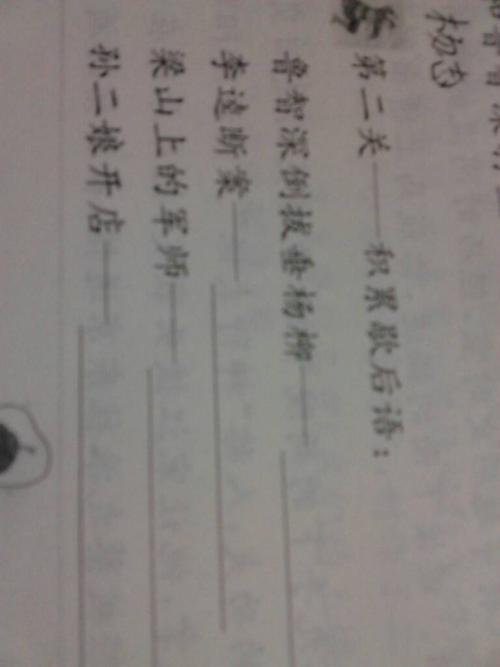 杨志
第二关——积累歇后语：
鲁智深倒拔垂杨柳——
李逵断案——
梁山上的军师——
孙二娘开店——